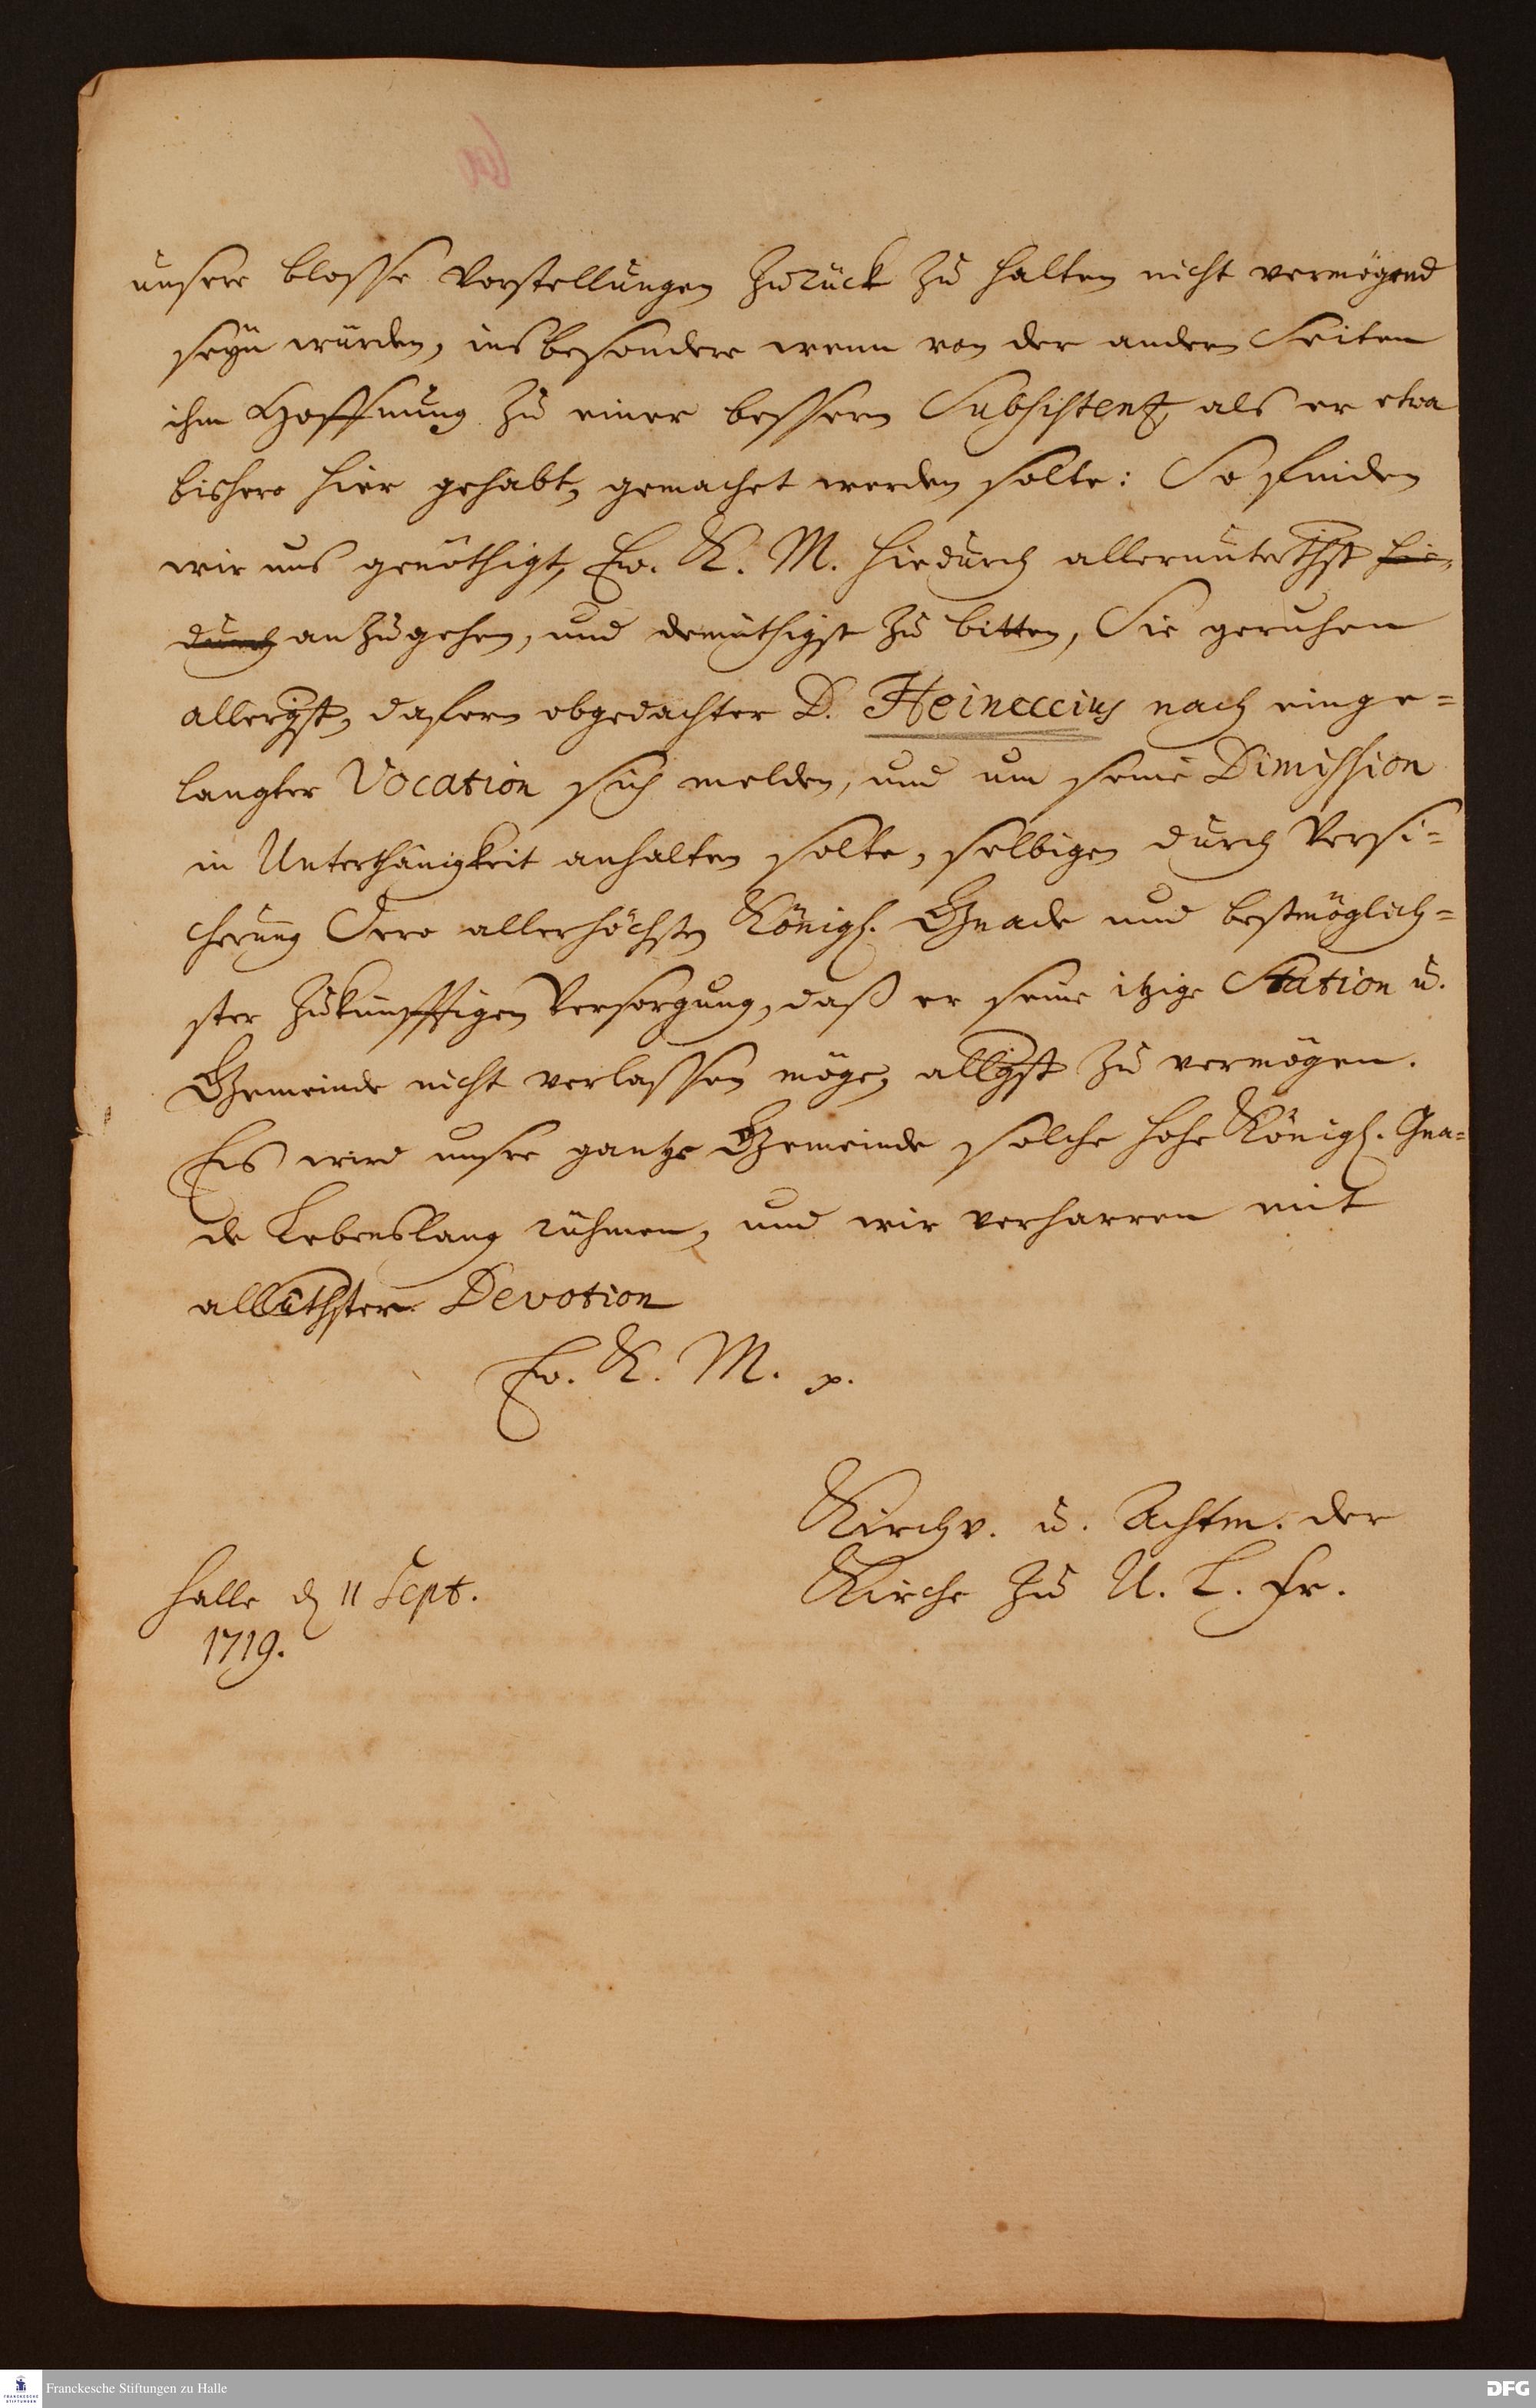 unsere blosse Vorstellungen zurück zu halten nicht vermögend
seyn würden, insbesondere wenn von der andern Seiten
ihm Hoffnung zu einer bessern Subsistentz, als er etwa
bishero hier gehabt, gemachet werden solte: So finden
wir uns genöthigt, Ew. K. M. hiedurch allerunterthst hie-
durch anzugehen, und demüthigst zu bitten, Sie geruhen
allergst, dafern obgedachter D. Heineccius nach einge=
langter Vocation sich melden, und um seine Dimission
in Unterthänigkeit anhalten solte, selbigen durch Versi=
cherung Dero allerhöchsten Königl. Gnade und bestmöglich=
ster zukünfftigen Versorgung, daß er seine itzige Station u.
Gemeinde nicht verlassen möge, allgst zu vermögen.
Es wird unsre gantze Gemeinde solche hohe Königl. Gna=
de Lebenslang rühmen, und wir verharren mit
alluthster Devotion
Ew. K. M. p.
Kirchv. u. Achtm. der
Kirche zu U. L. Fr.
Halle d 11 Sept.
1719.
Franckesche Stiftungen zu Halle
DFG